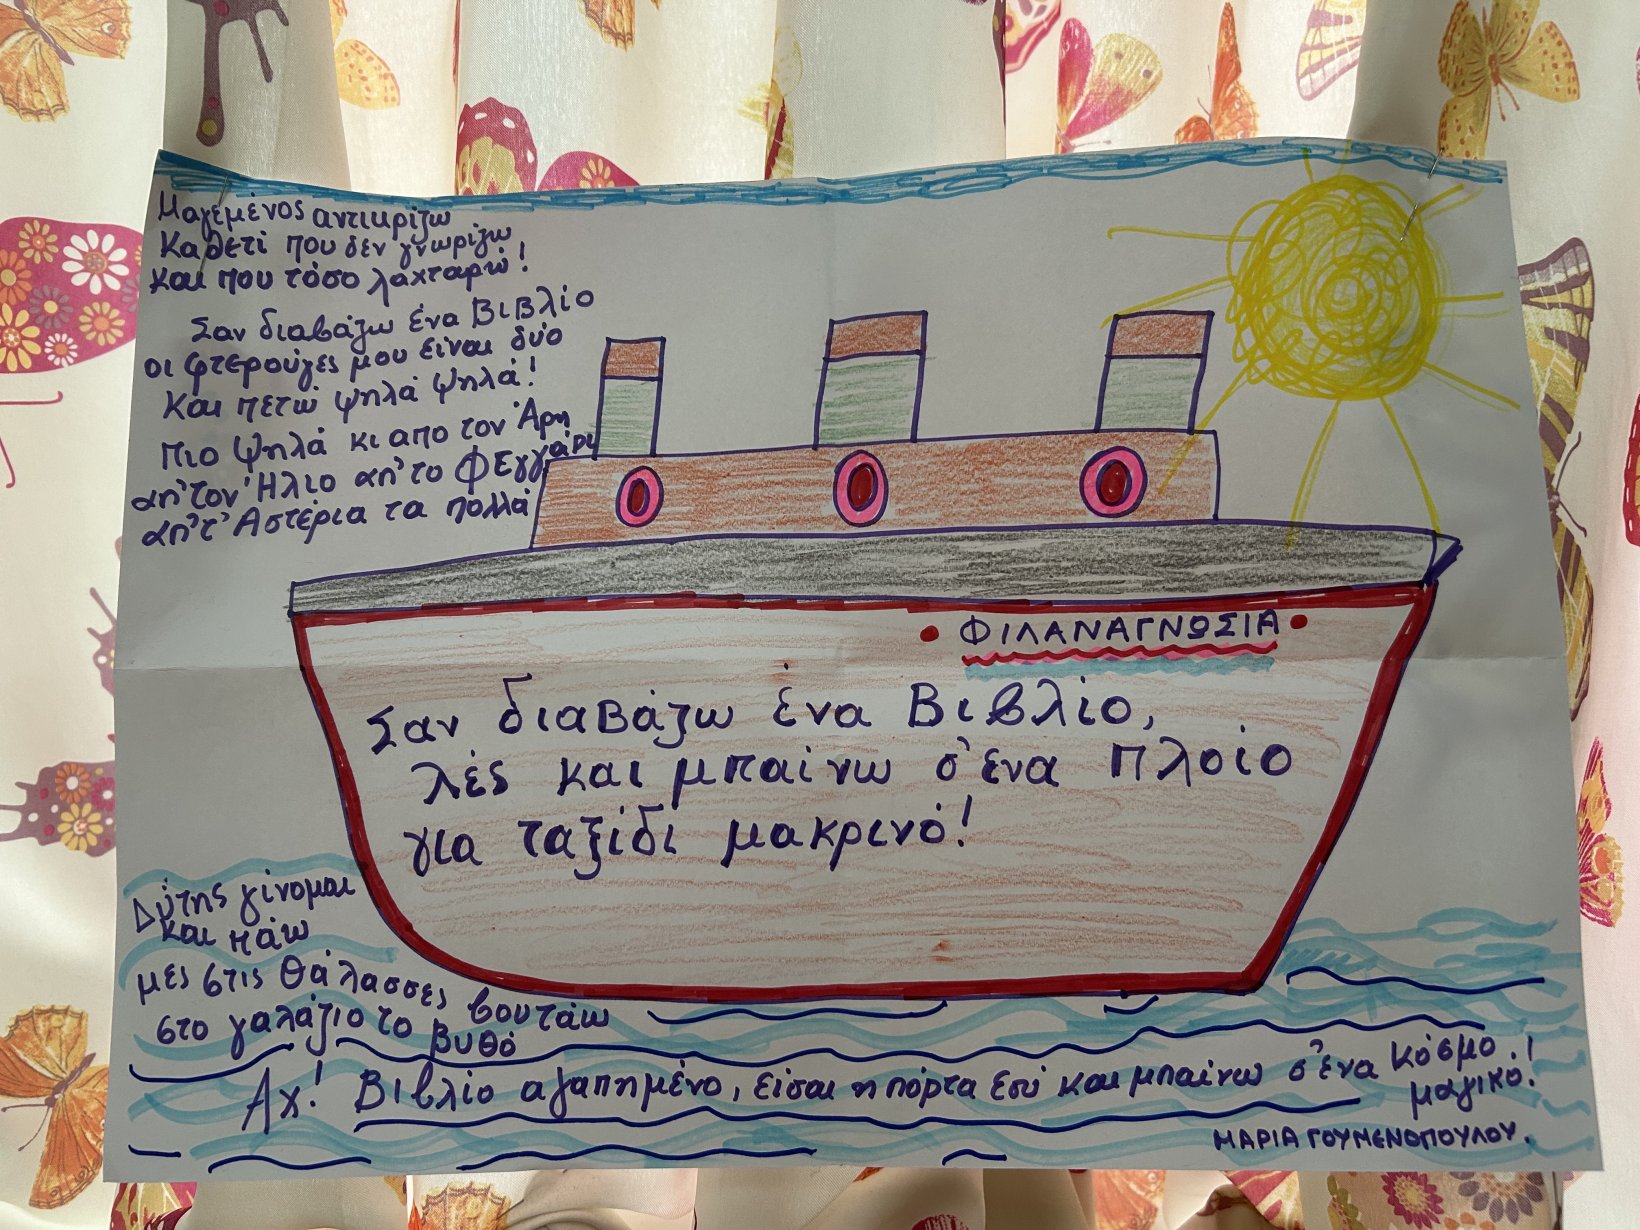 Μαγεμένος αντικρίζω
Καθετί που δεν γνωρίζω
και που τόσο λαχταρώ!
Σαν διαβάζω ένα Βιβλίο
οι φτερούγες μου είναι δύο
και πετώ ψηλά ψηλά!
Πιο ψηλά κι απο τον Άρη
απ' τον Ήλιο απ' το Φεγγάρι
απ' τ' Αστέρια τα πολλά
ΦΙΛΑΝΑΓΝΩΣΙΑ
Σαν διαβάζω ένα Βιβλίο,
λες και μπαίνω σ' ένα Πλοίο
για ταξίδι μακρινό!
Δύτης γίνομαι
και πάω
μες στις Θάλασσες βουτάω
στο γαλάζιο το βυθό
Αχ! Βιβλίο αγαπημένο, είσαι η πόρτα εσύ και μπαίνω σ' ένα κόσμο
μαγικό.!
ΜΑΡΙΑ ΓΟΥΜΕΝΟΠΟΥΛΟΥ.